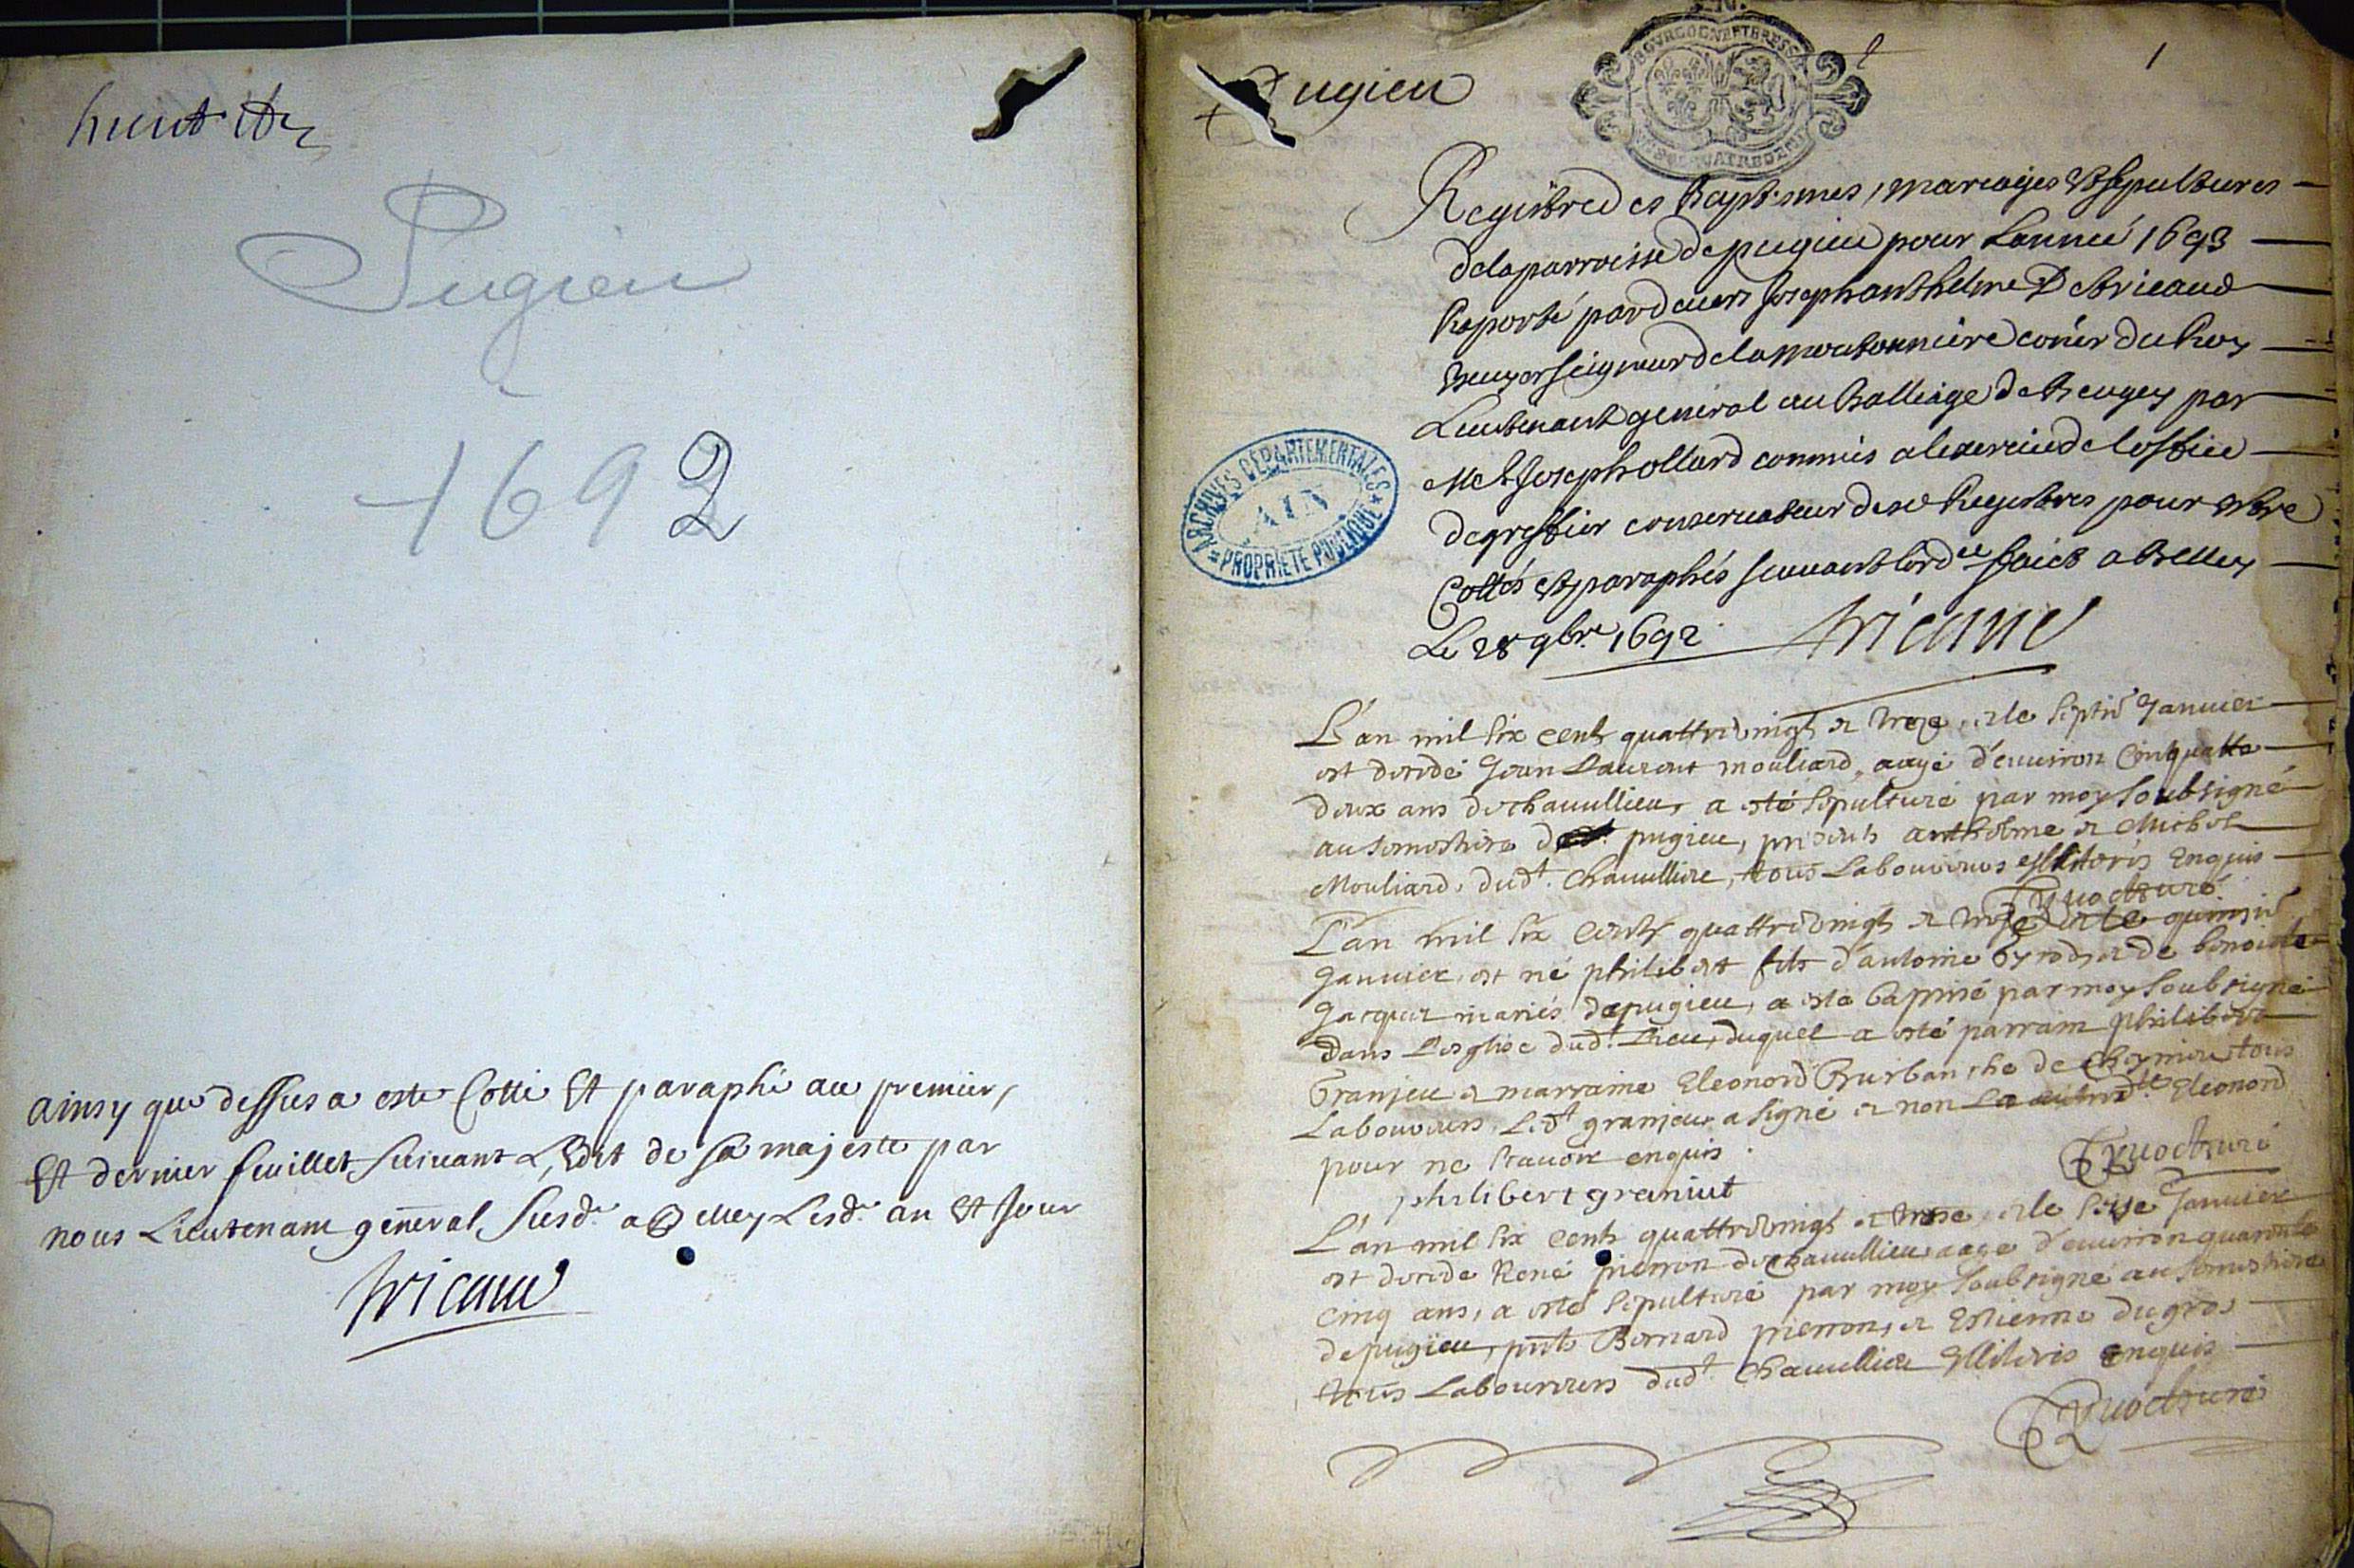 huit
Pugieu
1692
ainsy que dessus a este Cotté Et paraphé au premier,
Et dernier feuillet suivant L'Edit de sa majesté par
nous Lieutenant general susd. a Belley Lesd. an Et Jour
Tricaud
Pugieu
1
BOURGOGNE ET BRESSE
Registre des Baptismes, mariages et sepultures
de la parroisse de pugieu pour L'année 1693
Raporté pardevers Joseph anthelme De tricaud
Escuyer seigneur de la moutonniere coner du Roy
Lieutenant general au Balliage de Beugey par
Me Joseph ollard commis a lexercice de loffice
de greffier conservateur desd Registres pour estre
Cottés et paraphés suivant lord.ce faict a Belley
Le 28 9bre 1692 Tricaud
ARCHIVES DÉPARTEMENTALES
AIN
PROPRIÉTÉ PUBLIQUE
L'an mil six cents quattrevingt et treze, et le septie Janvier
est decedé Jean Laurent mouliard, aagé d'environ Cinquatte
deux ans de chavullieu, a esté sepulturé par moy soubsigné
au semestiere de pugieu, presents anthelme et Michel
Mouliard, dud.t Chavullieu, tous Laboureurs illiteris Enquis
L'an mil six cents quattrevingt et treze et le quinsie
Janvier, est né philibert fils d'antoine et de benoite
Jacquet mariés de pugieu, a esté baptisé par moy soubsigné
dans L'esglise dud.t Lieu, duquel a esté parrain philibert
Granjeu et marraine Eleonord Burbanche de Cheynieu tous
Laboureurs, Led.t granjeu a signé et non Eleonord
pour ne scavoir enquis
curé
philibert graniut
L'an mil six cents quattrevingt et treze, et le seize Janvier
est decede René pierron de chavullieu, aage d'environ quarante
cinq ans, a esté sepulturé par moy soubsigné au semestiere
de pugieu, pnts Bernard pierron, et Estienne dugros
tous Laboureurs dud.t Chavullieu illiteris enquis
curé